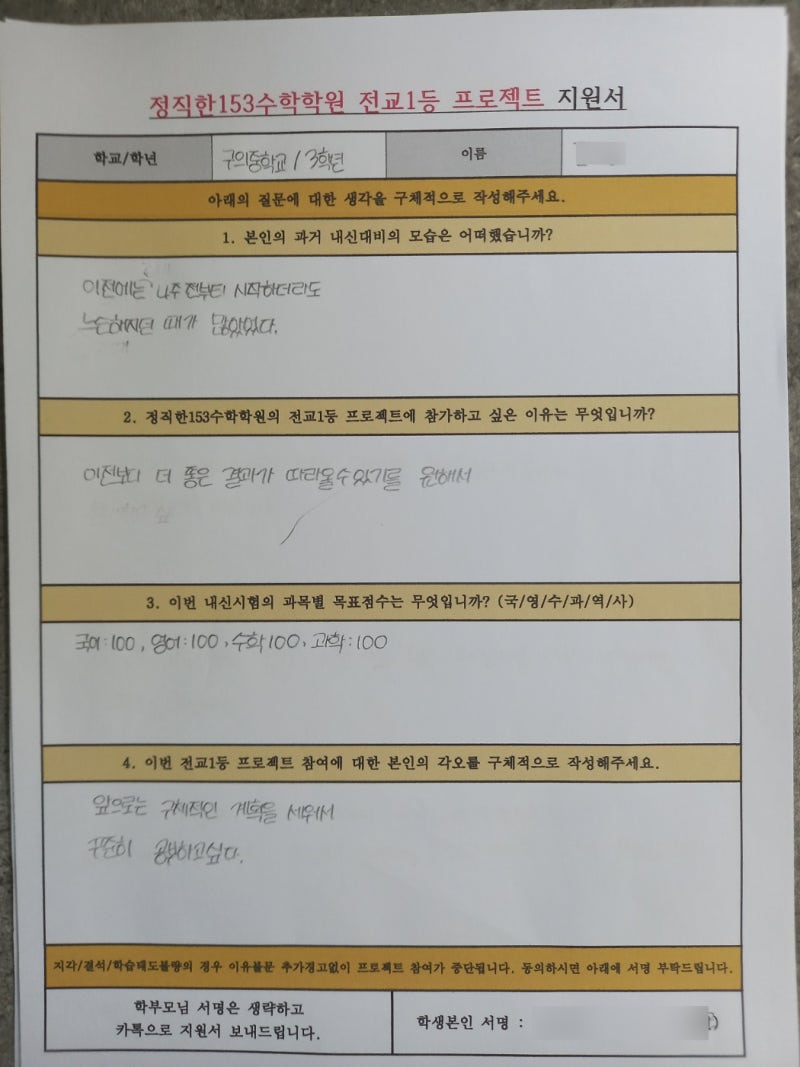 정직한153수학학원 전교1등 프로젝트 지원서
학교/학년 구의중학교 / 3학년 이름
아래의 질문에 대한 생각을 구체적으로 작성해주세요.
1. 본인의 과거 내신대비의 모습은 어떠했습니까?
이전에는 4주 전부터 시작하더라도
느슨해지던 때가 많았었다.
2. 정직한153수학학원의 전교1등 프로젝트에 참가하고 싶은 이유는 무엇입니까?
이전보다 더 좋은 결과가 따라올수있기를 원해서
3. 이번 내신시험의 과목별 목표점수는 무엇입니까? (국/영/수/과/역/사)
국어:100, 영어:100, 수학100, 과학:100
4. 이번 전교1등 프로젝트 참여에 대한 본인의 각오를 구체적으로 작성해주세요.
앞으로는 구체적인 계획을 세워서
꾸준히 공부하고싶다.
지각/결석/학습태도불량의 경우 이유불문 추가경고없이 프로젝트 참여가 중단됩니다. 동의하시면 아래에 서명 부탁드립니다.
학부모님 서명은 생략하고
카톡으로 지원서 보내드립니다.
학생본인 서명 :